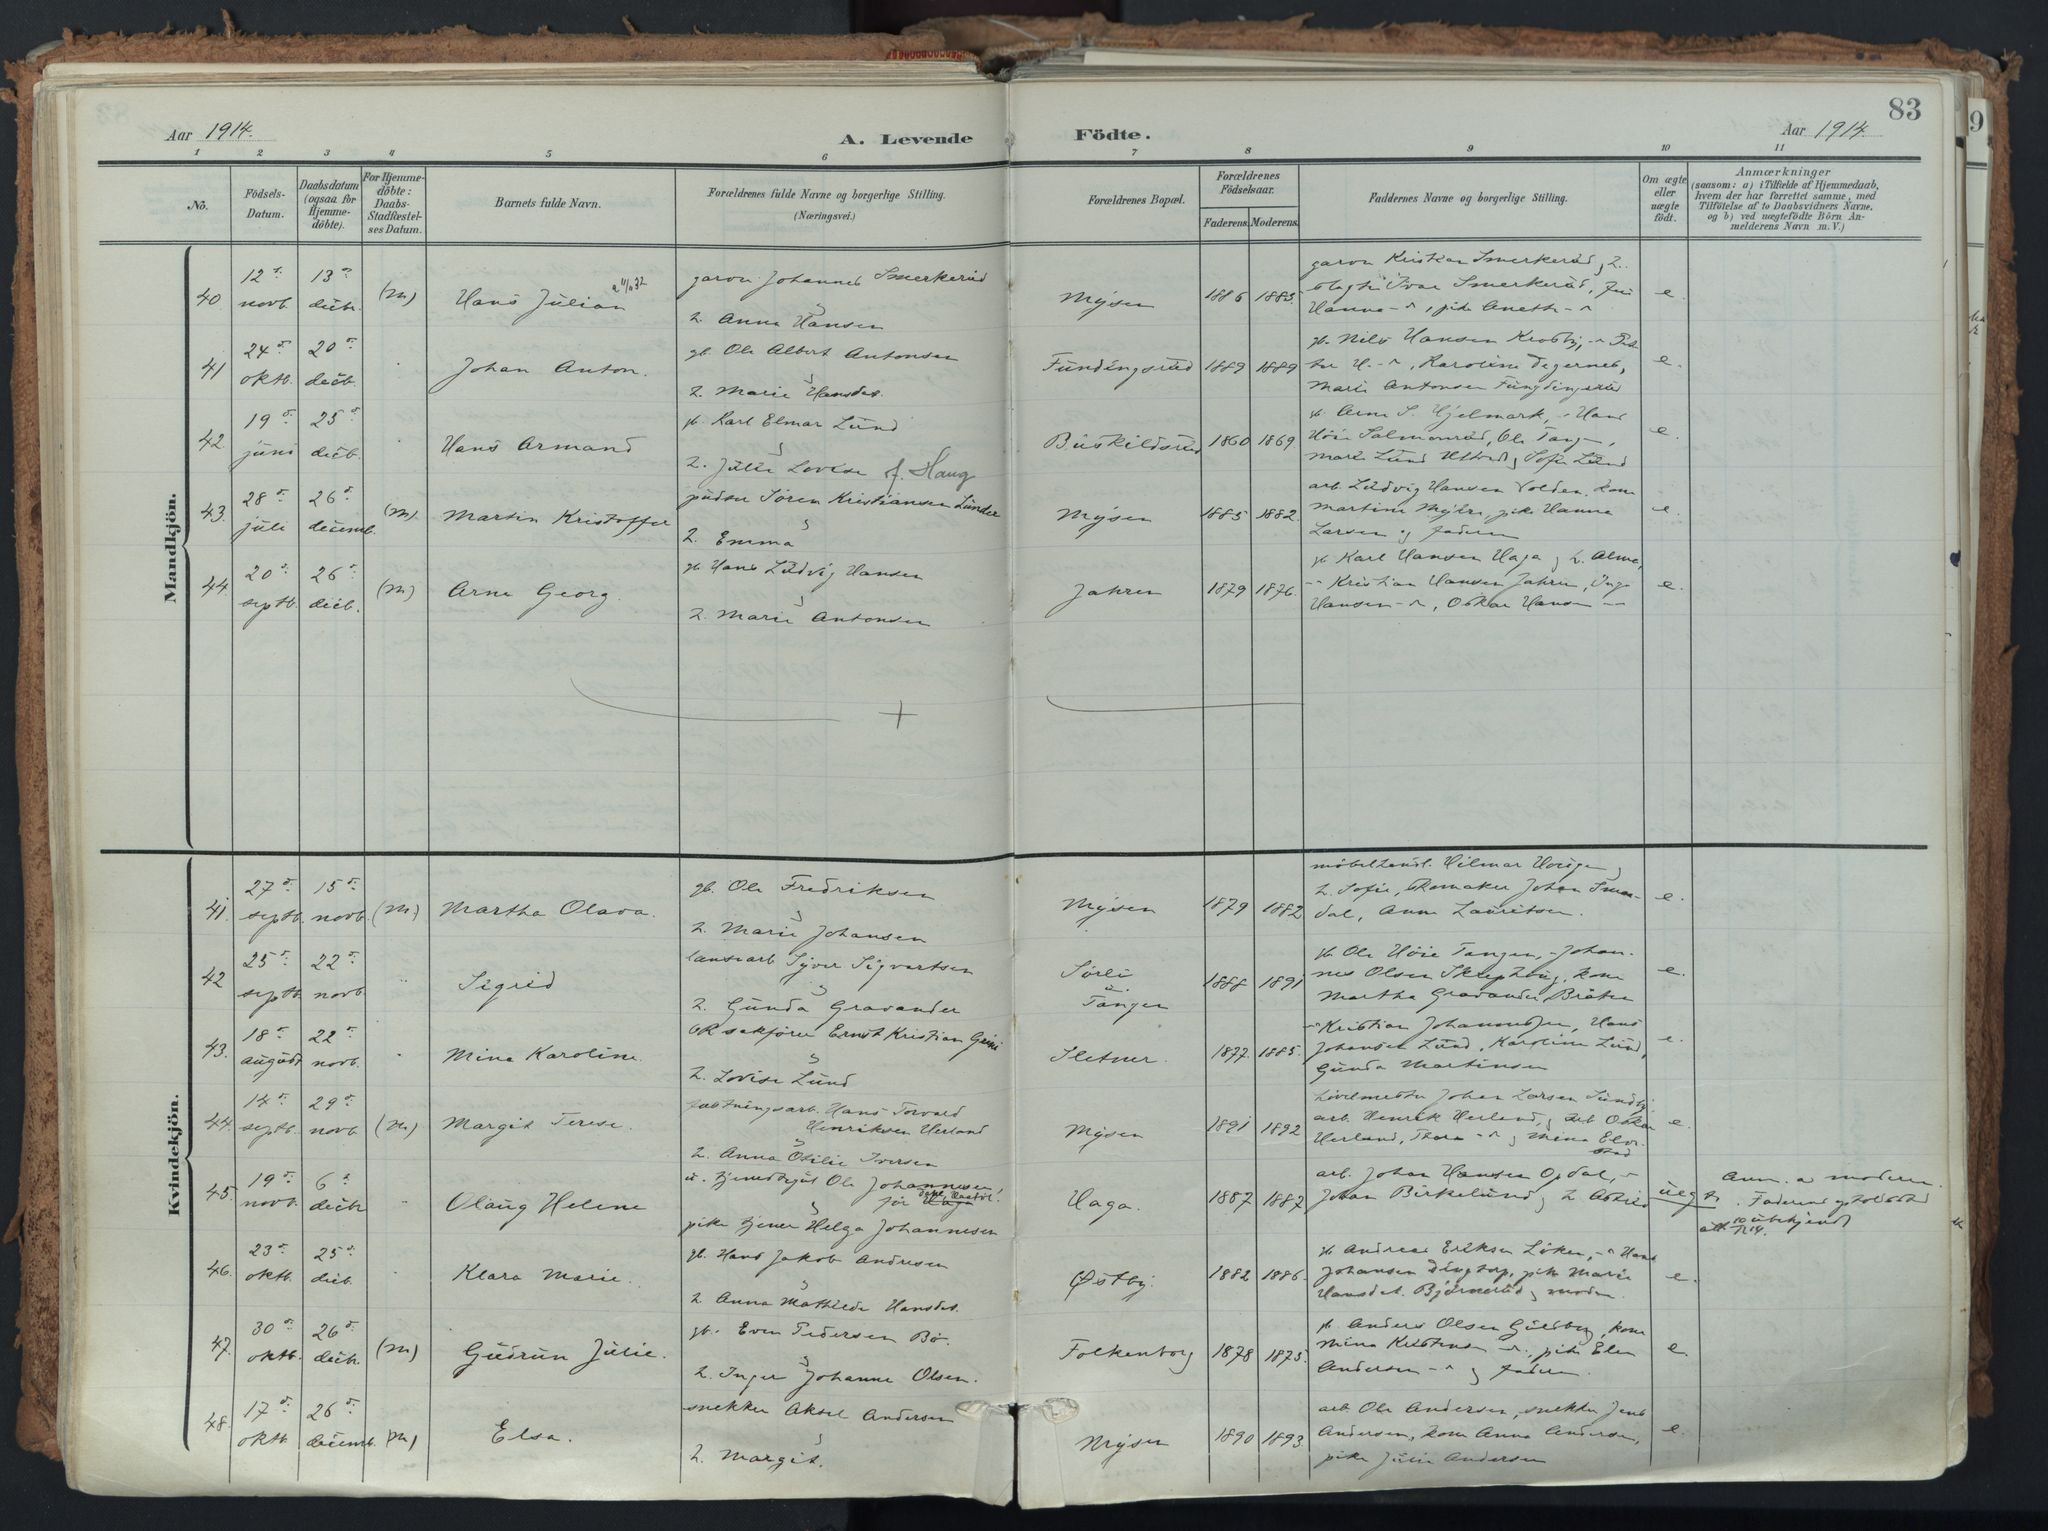 83
Aar 1914.
A. Levende Födte.
Aar 1914.
1 2 3 4 5 6 7 8 9 10 11
Nö.
Födsels-Datum.
Daabsdatum (ogsaa for Hjemme-döbte).
For Hjemme-döbte: Daabs-Stadfæstel-ses Datum.
Barnets fulde Navn.
Forældrenes fulde Navne og borgerlige Stilling.
(Næringsvei.)
Forældrenes Bopæl.
Forældrenes Födselsaar.
Faderens. Moderens.
Faddernes Navne og borgerlige Stilling.
Om ægte eller uægte födt.
Anmærkninger
(saasom: a) i Tilfælde af Hjemmedaab,
hvem der har forrettet samme, med
Tilföielse af to Daabsvidners Navne.
og b) ved uægtefödte Börn An-
melderens Navn m. V.)
Mandkjön.
40 12 novb. 13 decbr. (M) Hans Julian
garver Johannes Smerkerud
2. Anna Hansen
Mysen 1886 1885.
garver Kristian Smerkerud, 2.
Ivar Smerkerud,
Hanna , pike Anette
e.
41 24 oktb. 20 decb. Johan Anton.
gb. Ole Albert Antonsen
2. Marie Hansdat.
Fundingsrud 1889 1889
gb. Nils Hansen Krosby,
Karoline Degernes,
Marie Antonsen Fundingsrud
e.
42. 19 juni 25 decb. Hans Armand
gb. Karl Elmar Lund
2. Julie Lovise f. Haug
Buskildsrud 1860 1869
gb. Arne S. Hjelmark, Hans
Høie Salmonrud, Ole
Marie Lund og Sofie Lund
e.
43. 28 juli 26 decemb. (M) Martin Kristoffer
pudser Søren Kristiansen Lunder
2. Emma
Mysen 1885 1882.
arb. Ludvig Hansen Volden, kone
Martine Myhre, pike Hanna
Larsen og faderen
e.
44. 20 septb. 26 decb. (M) Arne Georg.
gb. Hans Ludvig Hansen
2. Marie Antonsen
Jahren 1879 1876.
gb Karl Hansen Haga og 2. Alma,
Kristian Hansen Jahren, Inga
Hansen , Oskar Hansen
e.
Kvindekjön.
41. 27 septb. 15 novb. (M) Martha Olava.
gb. Ole Fredriksen
2. Marie Johansen
Mysen 1879 1882
Hilmar
2. Sofie, skomaker Johan Smaa-
dal, Anna Lauritsen.
e.
42 25 septb. 22 novb. Sigrid
Syver Sigvartsen
2. Gunda Gravander
Sørli u. Tangen 1888 1891
gb. Ole Høie Tangen, Johan-
nes Olsen , kone
Martha Gravander Bråten
e.
43. 18 august 22 novb. Mina Karoline.
O.R.sakfører Ernst Kristian
2. Lovise Lund
Sletner. 1877 1885.
Kristian Johannessen, Hans
Johansen Lund, Karoline Lund,
Gunda Martinsen
e.
44. 14 septb. 29 novb. (M) Margit Terese.
fæstningsarb. Hans Torvald
Henriksen Herland
2. Anna Otilie Iversen
Mysen 1891 1892
Johan Larsen Sundby,
arb. Henrik Herland, og arb Oskar
Herland, Thora og Mina
e.
45. 19 novb. 6 decbr Olaug Helene
u. Ole Johannesen
pike tjener Helga Johannesen
Haga. 1887 1887
arb. Johan Hansen Opdal,
Johan Birkelund og 2. Astrid
uegt
Anm. a moderen.
ubekjendt
46. 23 oktb. 25 decb. Klara Marie.
gb. Hans Jakob Andresen
2 Anna Mathilde Hansdat.
Østby 1882 1886.
gb Andreas Eriksen Löken, Hans
Johansen Dingtorp, pike Marie
Hansdat. Björnerud og moderen.
e.
47. 30 oktb. 26 decbr. (M) Gudrun Julie.
gb. Even Pedersen Bø.
2. Inger Johanne Olsen.
Folkenborg 1878 1875.
gb Anders Olsen Guldberg, kone
Mina Kristensen , pike Elen
Andersen og faderen.
e.
48. 17 oktb. 26 decemb. (M) Elsa.
snekker Aksel Andersen
2. Margit.
Mysen 1890 1893
arb Ole Andersen, snekker Jens
Andersen, kone Anna Andersen,
pike Julie Andersen
e.